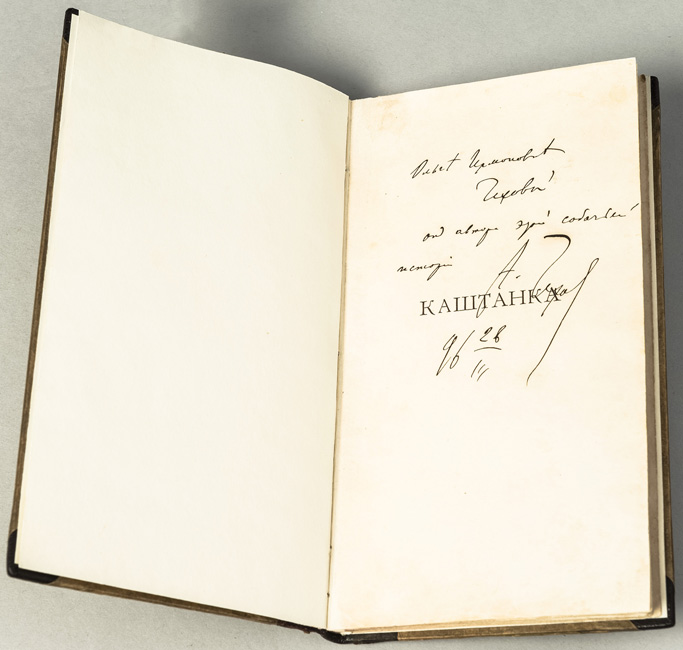 Ольгѣ Германовнѣ
Чеховой
отъ автора этой собачьей
исторіи
А. Чехов
КАШТАНКА
96 28/III